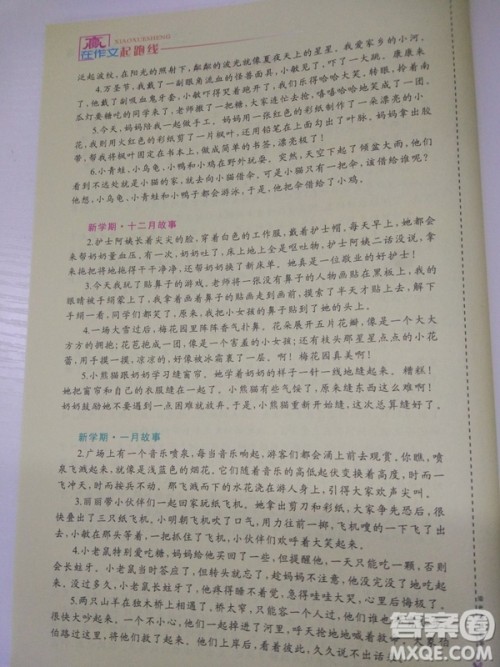 赢
在作文起跑线
XIAOXUESHENG
泛起波纹，在阳光的照射下，粼粼的波光就像夏夜天上的星星。我爱家乡的小河。
4.万圣节，我戴了一副眼角流血的怪兽面具，小敏见了，吓了一大跳。康康来
了，他戴了副吸血鬼牙套，小敏吓得叉开腿跑，我们乐得哈哈大笑。转眼，拎着南
瓜灯要糖吃的同学来了，老师撒了一把糖，大家连忙去捡，嘻嘻哈哈地笑成了一团。
5.今天，妈妈陪我一起做手工。妈妈用一张红色的彩纸制作了一朵漂亮的小红
花，我则用火红色的彩纸剪了一片枫叶，还用铅笔在上面勾出了叶脉。妈妈拿出胶
带，我帮将枫叶固定在书本上，做成简单的书签，漂亮极了！
6.小青蛙、小乌龟、小鸭和小鸡在野外玩耍。突然，天空下起了倾盆大雨，他们
看到不远处就是小猫的家，就去向小猫借伞，可是小猫只有一把伞，该借给谁呢？
他想，小乌龟、小青蛙和小鸭子都会游泳，于是，他把伞借给了小鸡。
新学期·十二月故事
2.护士阿姨长着尖尖的脸，穿着白色的工作服，戴着护士帽，每天早上，她都会
来帮奶奶量血压，有一次，奶奶吐了，床上地上全是呕吐物，护士阿姨二话没说，拿
来拖把将地拖得干干净净，还帮奶奶换了新床单。她真是一位敬业的好护士！
3.今天我们玩了贴鼻子的游戏。老师将一张没有鼻子的人物画贴在黑板上，我的
眼睛被手绢蒙上了，我拿着画着鼻子的贴画走到画前，摸索了半天才贴了上去，解开
手绢一看，同学们都笑了，原来，我把小女孩的鼻子贴到了她的头上。
4.一场大雪过后，梅花园里阵阵香气扑鼻。花朵展开五片花瓣，像是一个大大
方方的拥抱；花苞抱成一团，像是一个害羞的小女孩；还有枝头那星星点点的小花
蕾，用手摸一摸，凉凉的，好像被冰霜裹了一层。啊！梅花园真美啊！
5.小熊猫跟奶奶学习缝窗帘。她学着奶奶的样子一针一线地缝起来。糟糕！
她把窗帘和自己的衣服缝在一起了。小熊猫有些气馁了，原来缝东西这么难啊！
奶奶鼓励她不要遇到一点困难就放弃。于是，小熊猫重新开始缝，这次总算缝好了。
新学期·一月故事
2.广场上有一个音乐喷泉，每当音乐响起，游客们都会涌上前去观赏。你瞧，喷
泉飞溅起来，就像是浅蓝色的烟花，它们随着音乐的高低起伏变换着高度，时而一
飞冲天，时而按兵不动。那飞溅而下的水花浇在游人身上，引得大家欢声尖叫。
3.丽丽带小伙伴们一起回家玩纸飞机。她拿出剪刀和彩纸，大家争先恐后，很
快叠出了三只纸飞机，小明朝飞机大吹了一口气，用力往前一掷，飞机嗖的一下飞了出
去，小敏在那头等着，一把抓住了飞机，小伙伴们欢呼着大笑起来。
4.小老鼠特别爱吃糖，妈妈给他买回了一些，但提醒他，一天只可吃一颗，否则
会长蛀牙。小老鼠当时答应了，但转身就忘了，趁妈妈不注意，他没完没了地吃起
来。没过多久，小老鼠长蛀牙了，他疼得睡不着觉，急得哇哇大哭，心里后悔极了。
5.两只山羊在独木桥上相遇了，桥太窄，只能容一个人过，他们谁
很快大吵了起来。一个不小心，他们一起掉进了河里，呼天抢地地喊着救
伯路过这里，将他们救了起来。他们上岸后，看着彼此，久久说不出话
答案圈